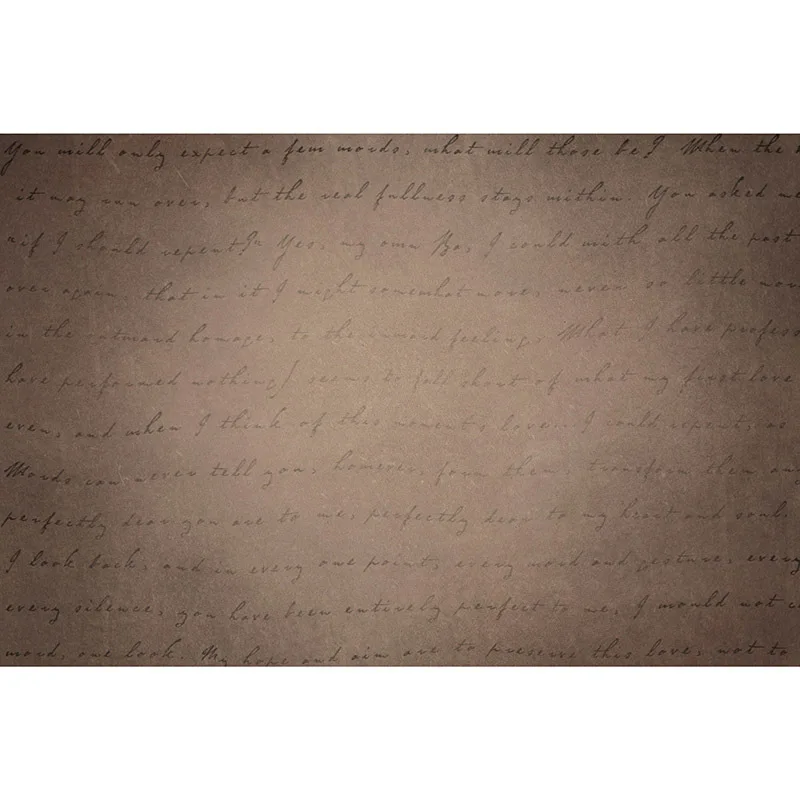 You will only expect a few words, what will those be? When the
it may run over, but the real fullness stays within. You asked me
"if I should repent?" Yes, my own Ba, I could wish all the past
over again, that in it I might somewhat more, never so little mor
in the outward homage, to the inward feeling. What I have profess
have performed nothing] seems to fall short of what my first love
even, and when I think of this moment's love. I could repent, as
Words can never tell you, however, form them, transform them any
perfectly dear you are to me, perfectly dear to my heart and soul.
I look back, and in every one point, every word and gesture, every
every silence, you have been entirely perfect to me, I would not c
word, one look. My hope and aim are to preserve this love, not to